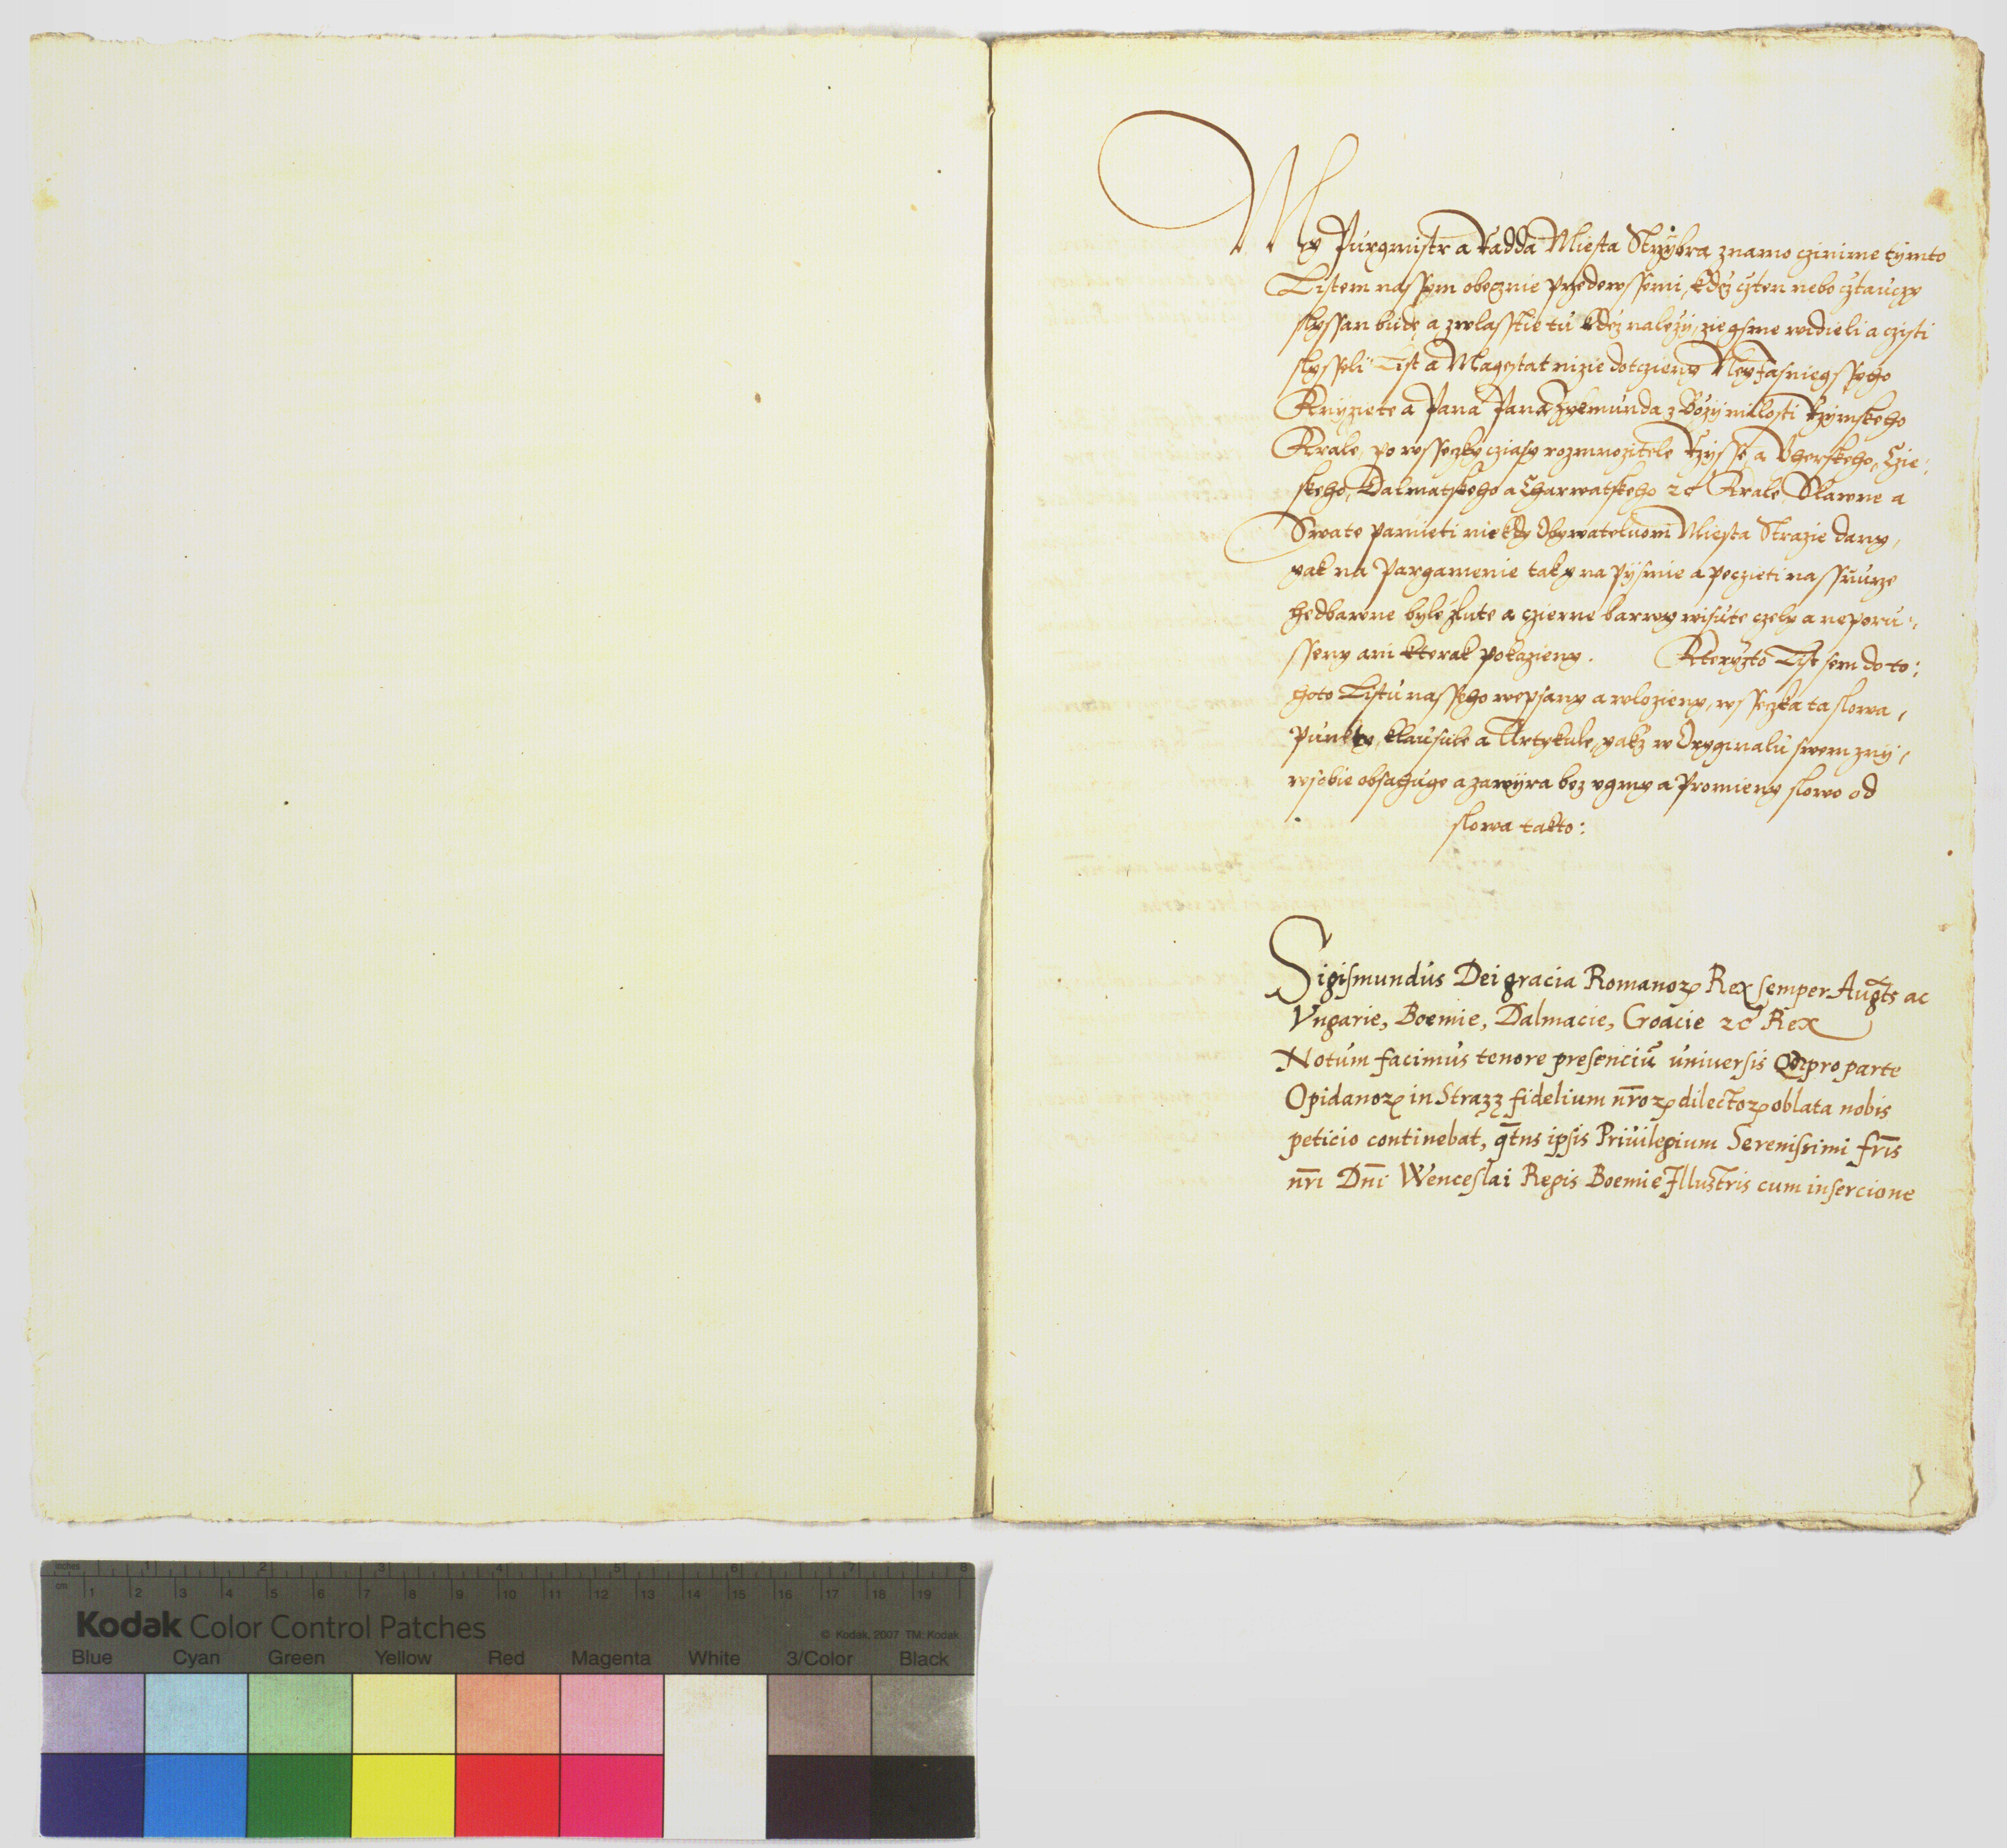 My Purgmistr a Radda Miesta Strzybra znamo czinime tymto
Listem nassym obecznie przedewssemi, kdez cžten nebo cžtaucy
slyssan bude a zwlasstie tu kdež naležy, zie gsme widieli a cžisti
slysseli List a Magestat nizie dotczieny Neyjasniegssyho
Knyziete a Pana Pana Zygmunda z Boży milosti Rzymskeho
Krale, po wsseczky cziasy rozmnozitele Rzysse a Vherskeho, Czie:
skeho, Dalmatskeho a Charwatskeho ꝛc Krale Slawne a
Swate pamieti niekdy Obywateluom Miesta Strazie dany,
yak na Pargamenie taky na Pysmie a peczieti na ssnuurze
hedbawne byle žlute a czierne barwy wisute czely a neporu:
sseny ani kterak pokazieny. Kteryžto List sem do to:
hoto Listu nasseho wepsany a wlozieny, wsseczka ta slowa,
Punkty, klausule a Artykule, yakž w Orygmalu swem zny,
wsobie obsahuge a zawyra bez vgmy a Promieny slowo od
slowa takto:
Sigismundus Dei gracia Romanoꝝ Rex semper Augt̃s ac
Vngarie, Boemie, Dalmacie, Croacie ꝛc Rex
Notum facimus tenore presenciũ universis Qđ pro parte
Opidanoꝝ in Strazz fidelium nr̃oꝝ dilectoꝝ oblata nobis
peticio continebat, q̃tns ipsis Priuilegium Serenissimi fr̃is
nr̃i Dn̄i Wenceslai Regis Boemie Illustris cum insercione
inches 1 2 3 4 5 6 7 8
cm 1 2 3 4 5 6 7 8 9 10 11 12 13 14 15 16 17 18 19
Kodak Color Control Patches
© Kodak, 2007 TM: Kodak
Blue Cyan Green Yellow Red Magenta White 3/Color Black